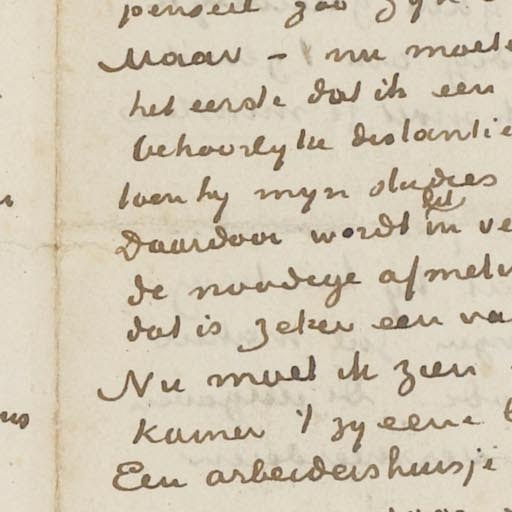 penseel zoo zyn
Maar – 't nu moet
het eerste dat ik een
behoorlyke distantie
toen hy myn studies
dit
Daardoor wordt in ve
de noodige afmet
dat is zeker een va
Nu moet ik zien
us
kamer 't zy eene b
Een arbeidershuisje